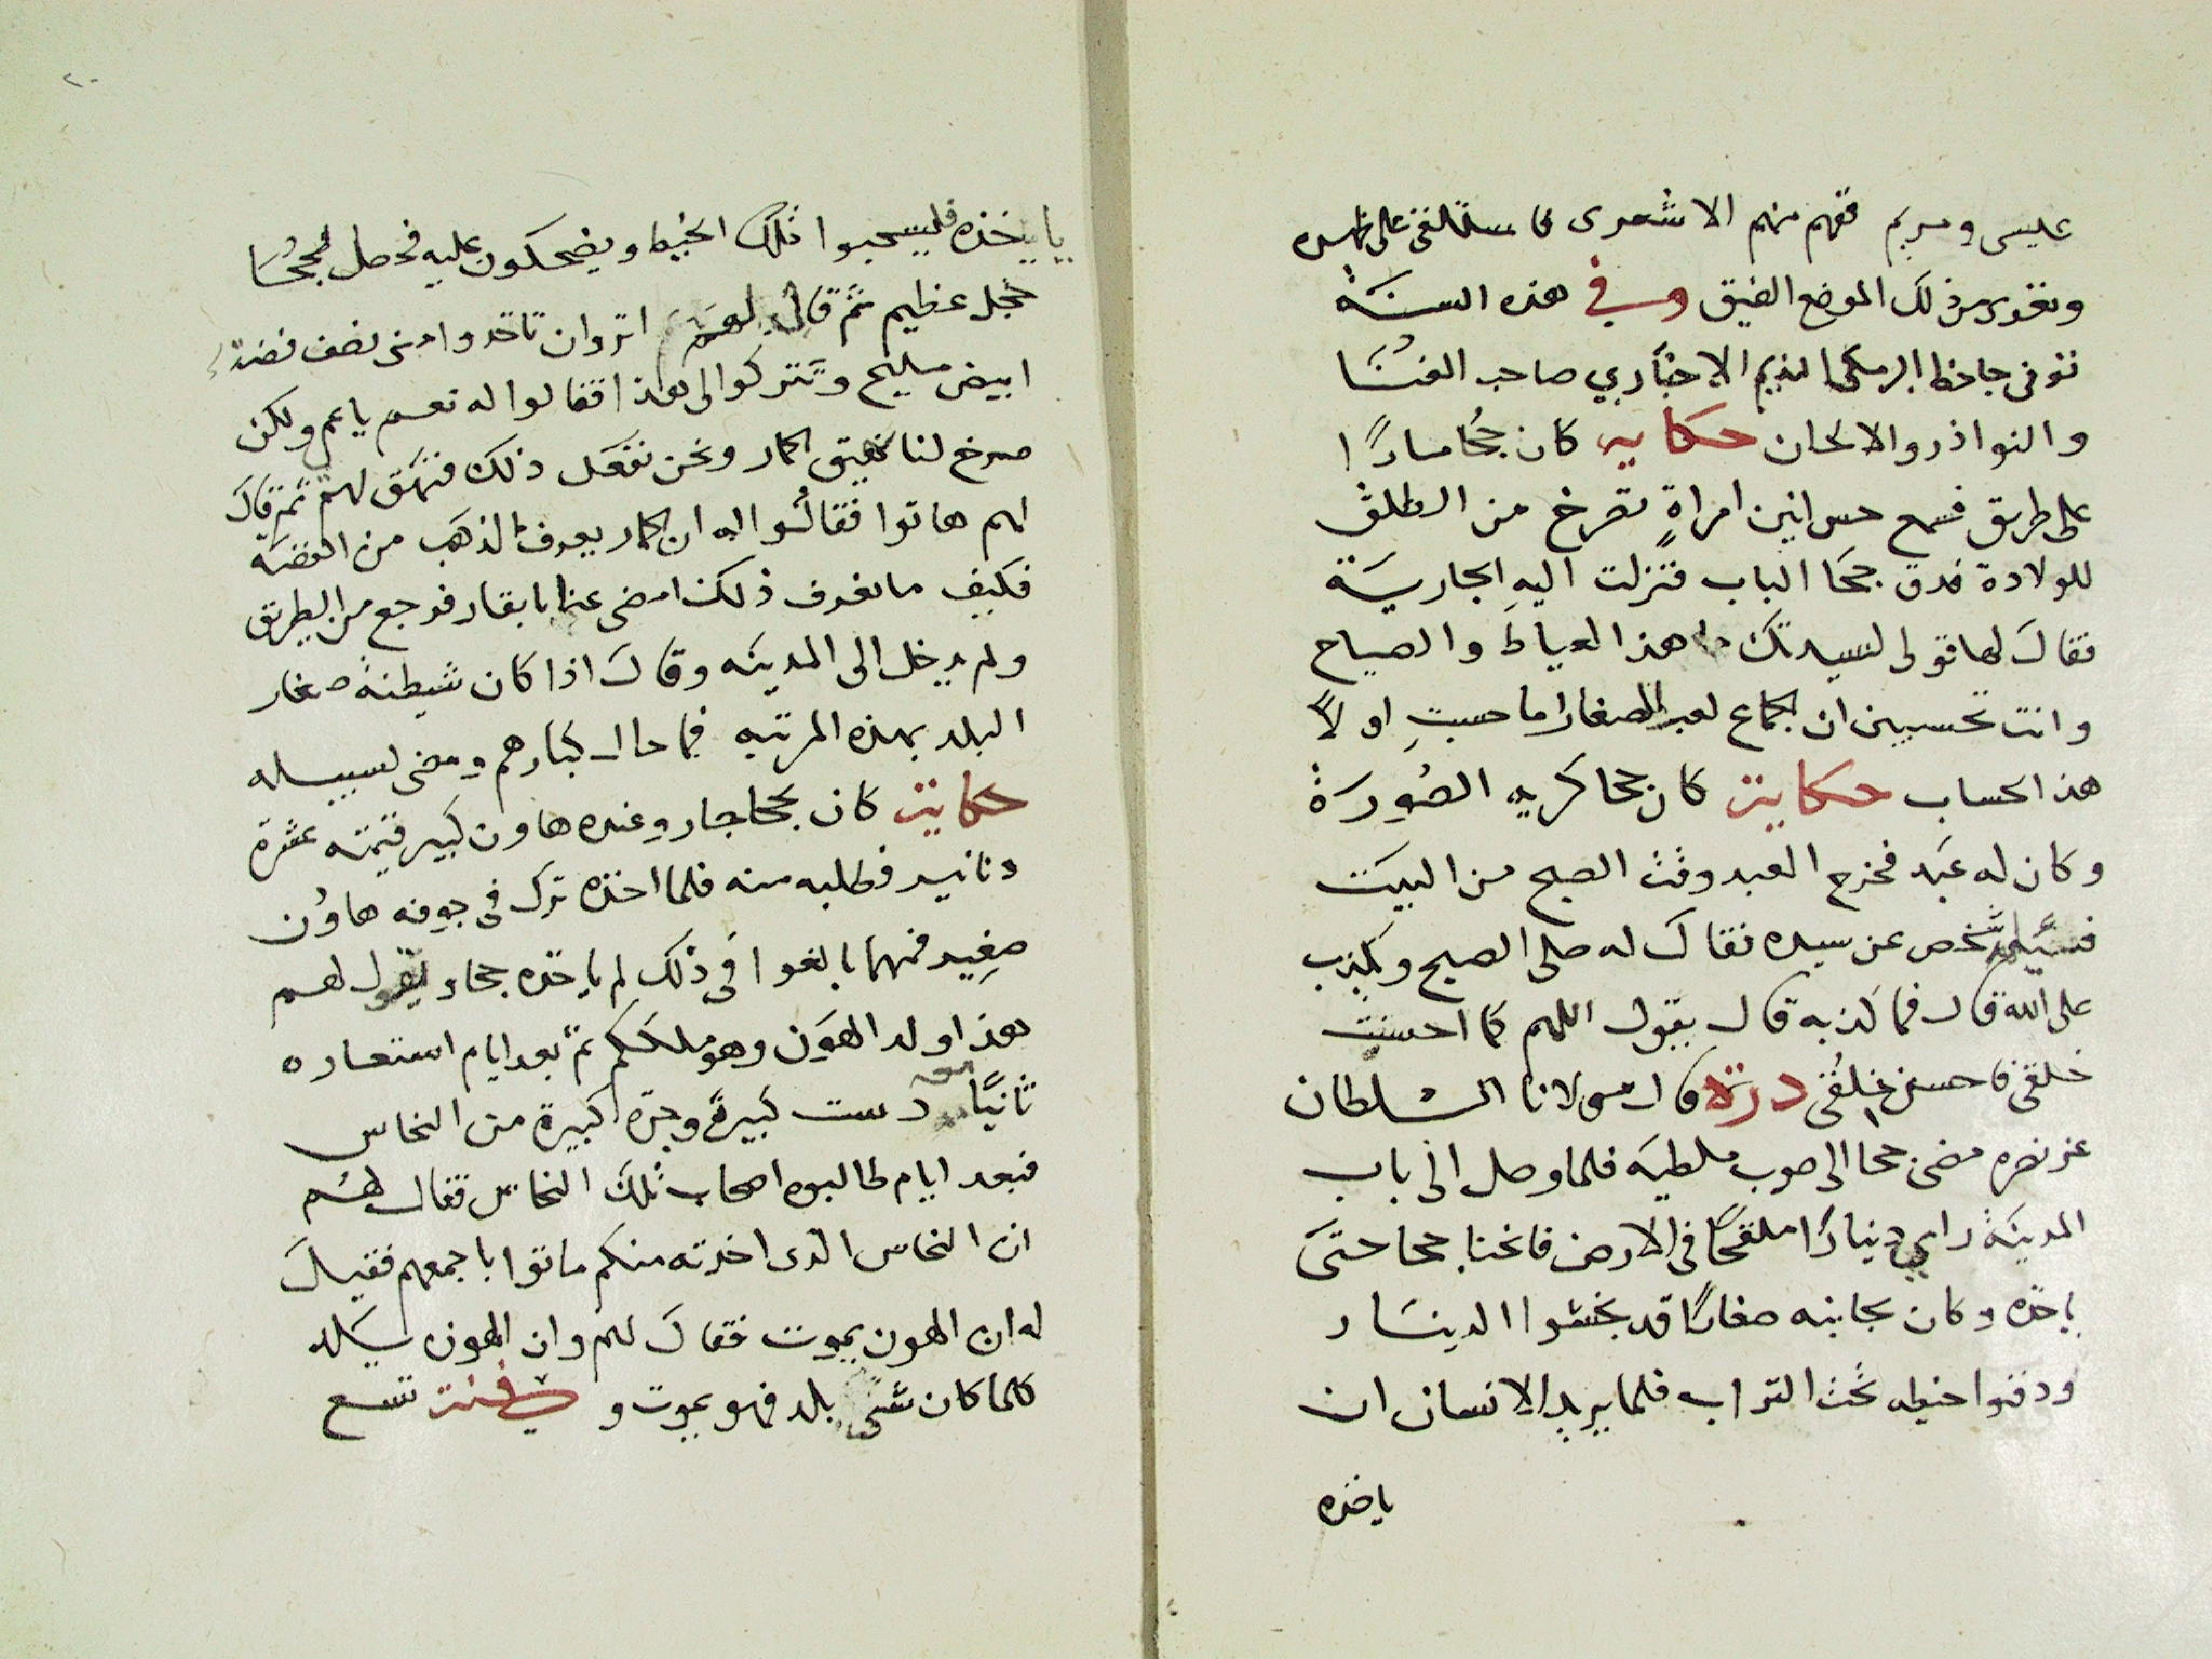 عليسى ومريم ففهم منهم الاشعرى
ونغوى من ذلك الموضع الضيق وفي هذه السنة
توفى جاحظ البرمكى النديم الاخباري صاحب الغنا
والنواذر والالحان حكاية كان جحا مارًا
على طريق فسمع حس انين امراةٍ تصرخ من الطلق
للولادة فدق جحا الباب فنزلت اليه الجارية
فقال لها قولى لسيدتك ما هذا العياط والصياح
وانت تحسبين ان الجماع لعب الصغار اما حسبتِ اولًا
هذا الحساب حكاية كان جحا كريه الصُورَة
وكان له عَبد فخرج العبد وقت الصبح من البيت
فسئله شخص عن سيده فقال له صلى الصبح ويكذب
على الله قال فما كذبه قال يقول اللهم كما احسنت
خلقى فاحسن خُلقى درة قال مولانا السلطان
عز نصره مضى جحا الى صوب ملطيه فلما وصل الى باب
المدينة راي دينارًا ملقحًا فى الارض فانحنا جحا حتى
ياخذه وكان بجانبه صغارًا قد بخشوا الدينار
ودفنوا خيطه تحت التراب فلما يريد الانسان ان
ياخذه
٢٠
يا يخذه فليسحبوا ذلك الخيط ويضحكون عليه فحصل لجحا
خجل عظيم ثم قال لهم اتروان تاخدوا منى نصف فضة
ابيض مليح وتتركوا لى هذا فقالوا له نعم يا عم ولكن
صرخ لنا نهيق الحمار ونحن نفعل ذلك فنهق لهم ثم قال
لهم هاتوا فقالُوا له ان الحمار يعرف الذهب من الفضه
فكيف ما نعرف ذلك امضى عنا يا بقار فرجع من الطريق
ولم يدخل الى المدينه وقال اذا كان شيطنة صغار
البلد بهذه المرتبه فما حال كبارهم ومضى لسبيله
حكاية كان بجحا جار وعنده هاون كبير قيمته عشرة
دنانير فطلبه منه فلما اخذه ترك فى جوفه هاوُن
صغير فمهما بالغوا فى ذلك لم ياخذه جحا ويقول لهم
هذا ولد الهوَن وهو ملككم ثم بعد ايام استعاره
ثانيًا دست كبيرة وجرة كبيرة من النحاس
فبعد ايام طالبوه اصحاب ذلك النحاس فقال لهم
ان النحاس الذى اخذته منكم ماتوا باجمعهم فقيل
له ان الهون يموت فقال لهم وان الهون يلد
كلما كان شى يلد فهو يموت و فى سنة تسع